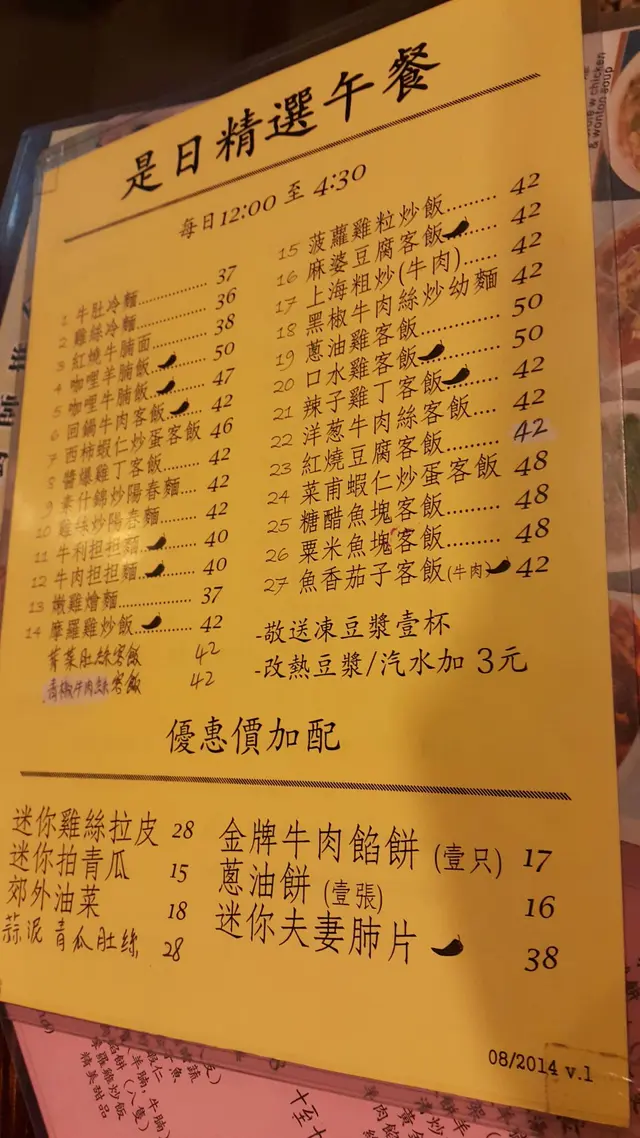 是日精選午餐
每日12:00 至 4:30
1 牛肚冷麵 37
2 雞絲冷麵 36
3 紅燒牛腩面 38
4 咖喱羊腩飯 50
5 咖喱牛腩飯 47
6 回鍋牛肉客飯 42
7 西柿蝦仁炒蛋客飯 46
8 醬爆雞丁客飯 42
9 素什錦炒陽春麵 42
10 雞絲炒陽春麵 42
11 牛利担担麵 40
12 牛肉担担麵 40
13 嫩雞燴麵 37
14 摩羅雞炒飯 42
菁菜肚絲客飯 42
青椒牛肉絲客飯 42
15 菠蘿雞粒炒飯 42
16 麻婆豆腐客飯 42
17 上海粗炒(牛肉) 42
18 黑椒牛肉絲炒幼麵 42
19 蔥油雞客飯 50
20 口水雞客飯 50
21 辣子雞丁客飯 42
22 洋葱牛肉絲客飯 42
23 紅燒豆腐客飯 42
24 菜甫蝦仁炒蛋客飯 48
25 糖醋魚塊客飯 48
26 粟米魚塊客飯 48
27 魚香茄子客飯(牛肉) 42
-敬送凍豆漿壹杯
-改熱豆漿/汽水加 3元
優惠價加配
迷你雞絲拉皮 28
迷你拍青瓜 15
郊外油菜 18
蒜泥青瓜肚絲 28
金牌牛肉餡餅 (壹只) 17
蔥油餅 (壹張) 16
迷你夫妻肺片 38
08/2014 v.1
chicken
& wonton soup